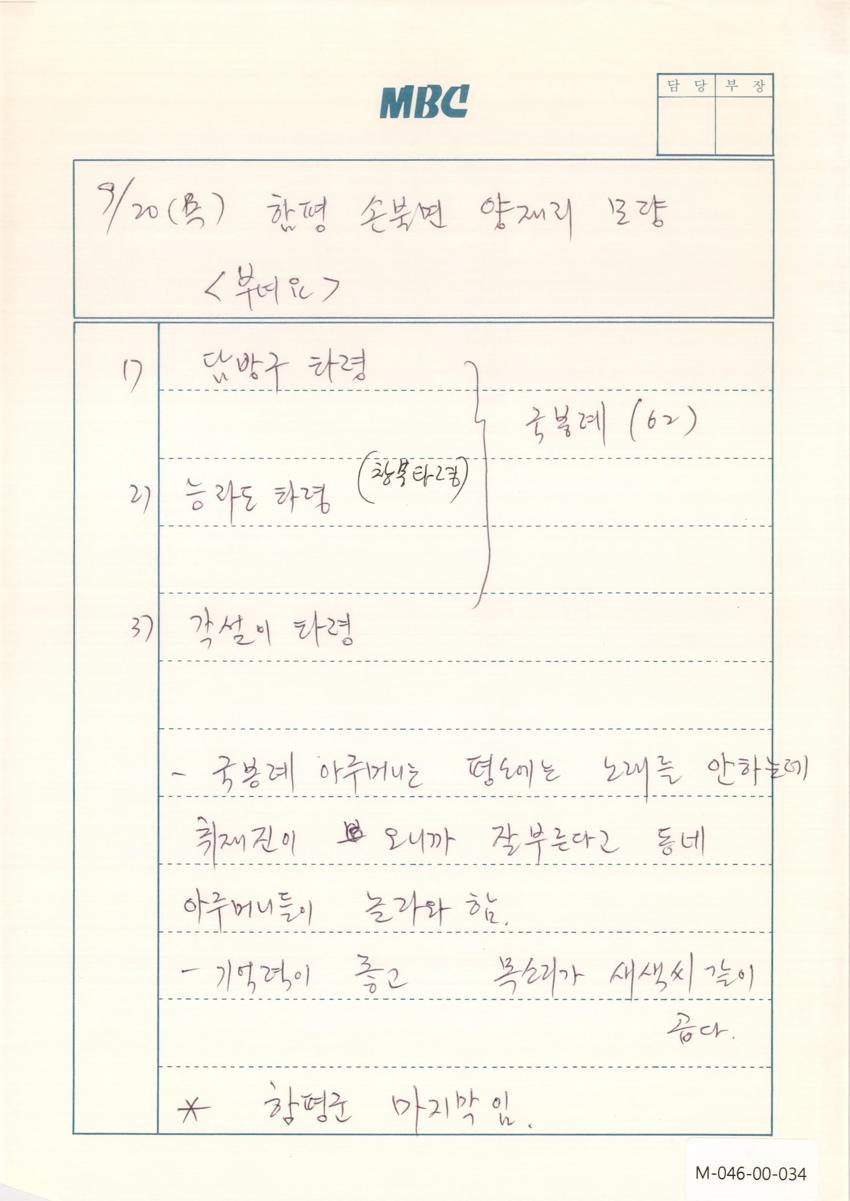 MBC
담당 부장
9/20(목) 함평 손북면 양재리 모량
<부녀요>
1) 담방구 타령
국봉례 (62)
2) 능라도 타령 (창부타령)
3) 각설이 타령
- 국봉례 아주머니는 평소에는 노래를 안하는데
취재진이 오니까 잘부른다고 동네
아주머니들이 놀라와 함.
- 기억력이 좋고 목소리가 새색씨 같이
곱다.
* 함평군 마지막 임.
M-046-00-034